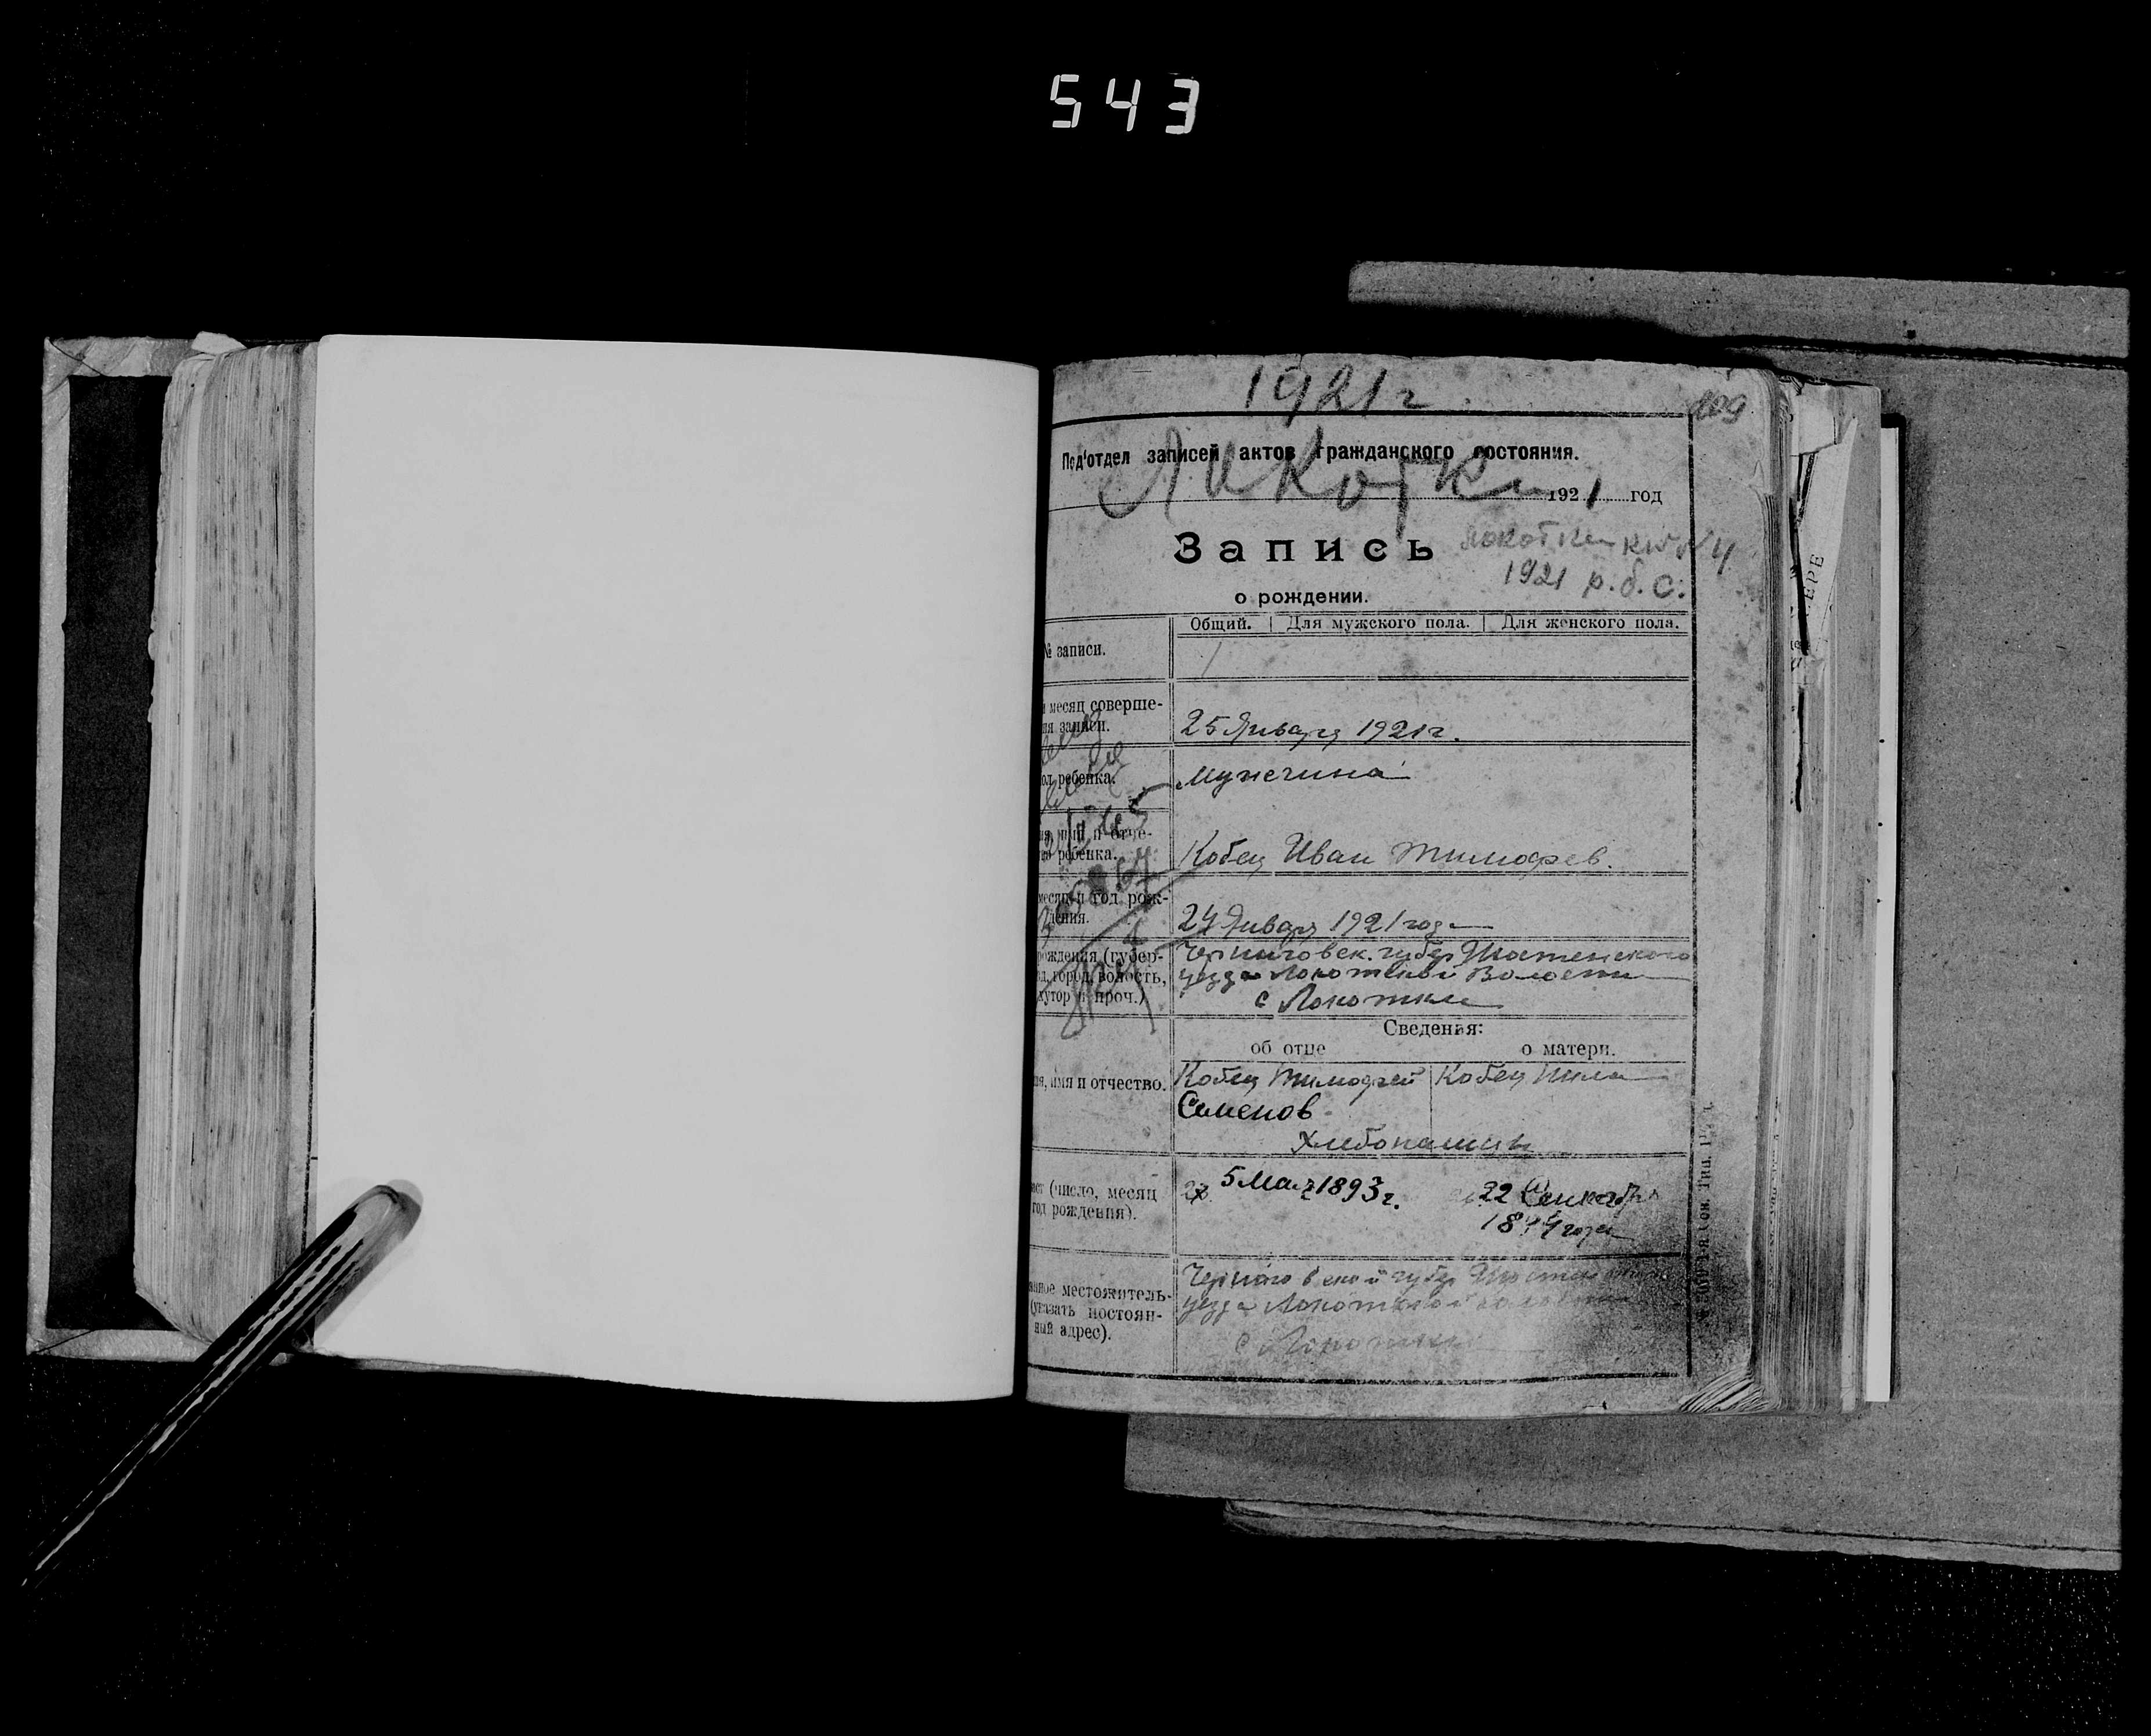 543
1921 г.
109
Под'отдел записей актов гражданского состояния.
Локотки 1921 год
Запись
1921 р. б. С.
о рождении.
Общий. Для мужского пола. Для женского пола.
№ записи.
1
месяц соверше-
ия записи.
25 Января 1921 г.
ол ребенка.
Мужчина
имя и отче-
ребенка.
Кобец Иван Тимофев.
месяц и год рож-
дения.
24 Января 1921 года
рождения (губер-
город, волость,
хутор и проч.)
Черниговск. губер Шостенского
уезда Локотской Волости
с Локотки
Сведения:
об отце о матери.
имя и отчество.
Кобец Тимофей Кобец
Семенов
Хлебопашцы
(число, месяц
год рождения).
5 Мая 1893 г. 22 Сентября
года
местожитель-
(указать постоян-
ный адрес).
Черниговской губер
уезда Локотской
с Локотки